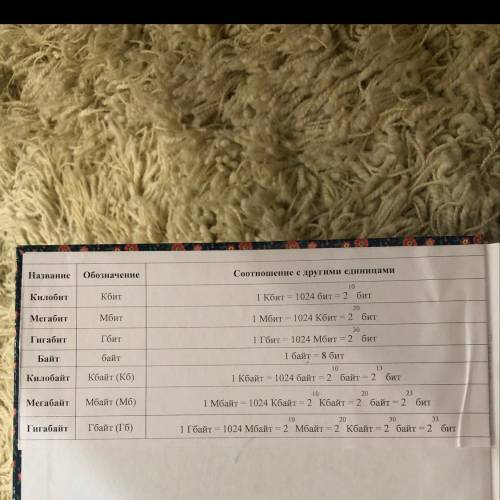 Название Обозначение Соотношение с другими единицами
Килобит Кбит 1 Кбит = 1024 бит = 2^10 бит
Мегабит Мбит 1 Мбит = 1024 Кбит = 2^20 бит
Гигабит Гбит 1 Гбит = 1024 Мбит = 2^30 бит
Байт байт 1 байт = 8 бит
Килобайт Кбайт (Кб) 1 Кбайт = 1024 байт = 2^10 байт = 2^13 бит
Мегабайт Мбайт (Мб) 1 Мбайт = 1024 Кбайт = 2^10 Кбайт = 2^20 байт = 2^23 бит
Гигабайт Гбайт (Гб) 1 Гбайт = 1024 Мбайт = 2^10 Мбайт = 2^20 Кбайт = 2^30 байт = 2^33 бит